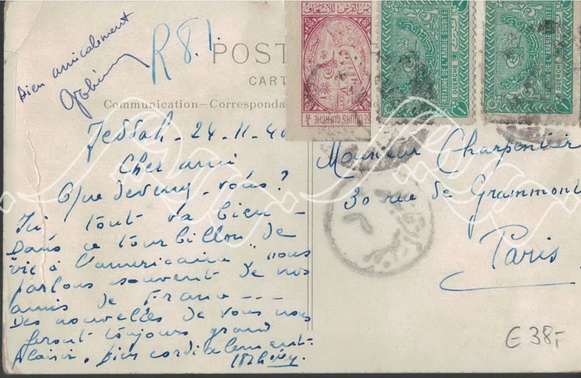 Bien amicalement
R 8.1.
POST
CART
Communication – Correspondance
Jeddah - 24-11-4
Cher ami
Que devenez-vous?
Ici tout va bien -
Dans ce tourbillon de
vie à l'américaine nous
parlons souvent de nos
amis de France ---
Des nouvelles de vous nous
feront toujours grand
plaisir, bien cordialement
Monsieur Charpentier
30 rue de Grammont
Paris
€ 38,-